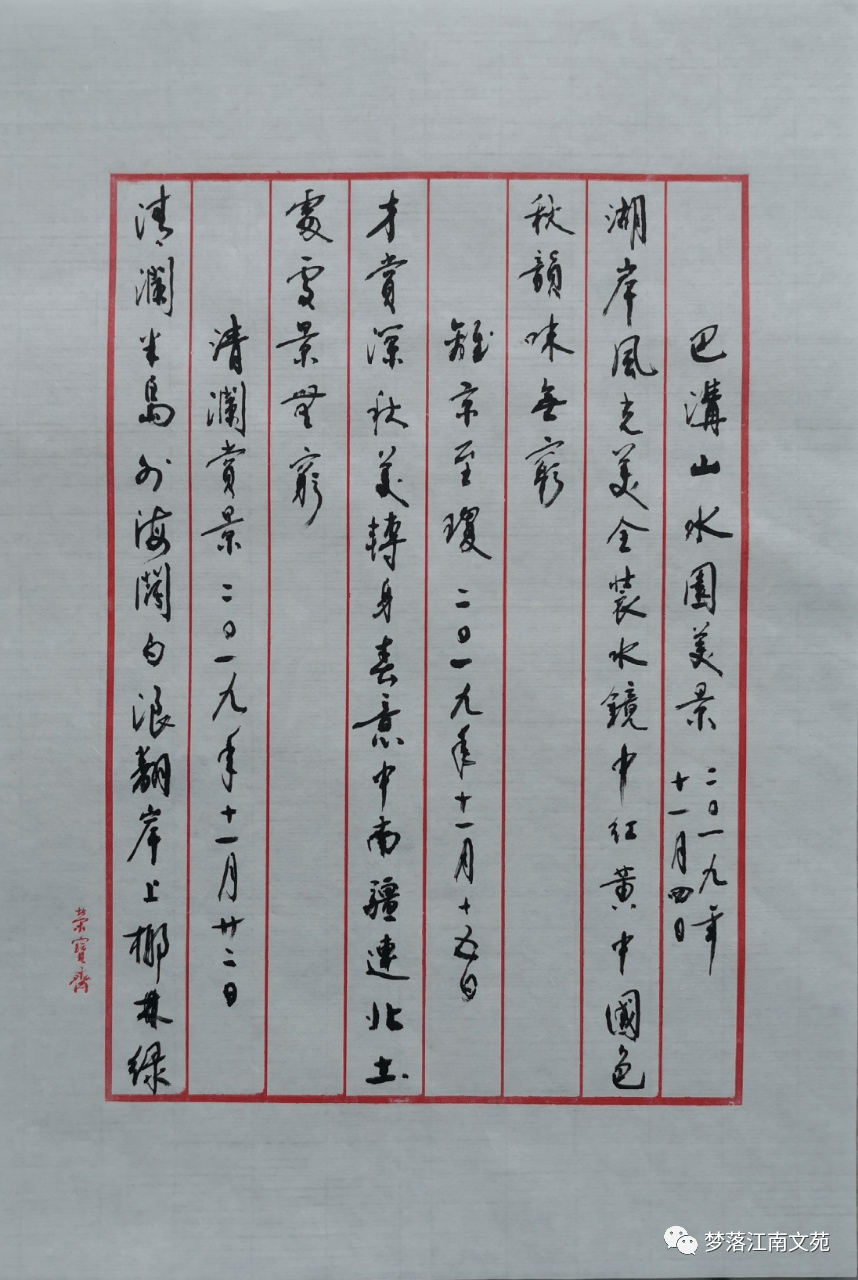 巴溝山水園美景 二〇一九年
十一月四日
湖岸風光美全裝水鏡中紅黃中國色
秋韻味無窮
離京至瓊 二〇一九年十一月十五日
才賞深秋美轉身春意中南疆連北土
處處景無窮
清瀾賞景 二〇一九年十一月廿二日
清瀾半島外海闊白浪翻岸上椰林綠
榮寶齋
梦落江南文苑